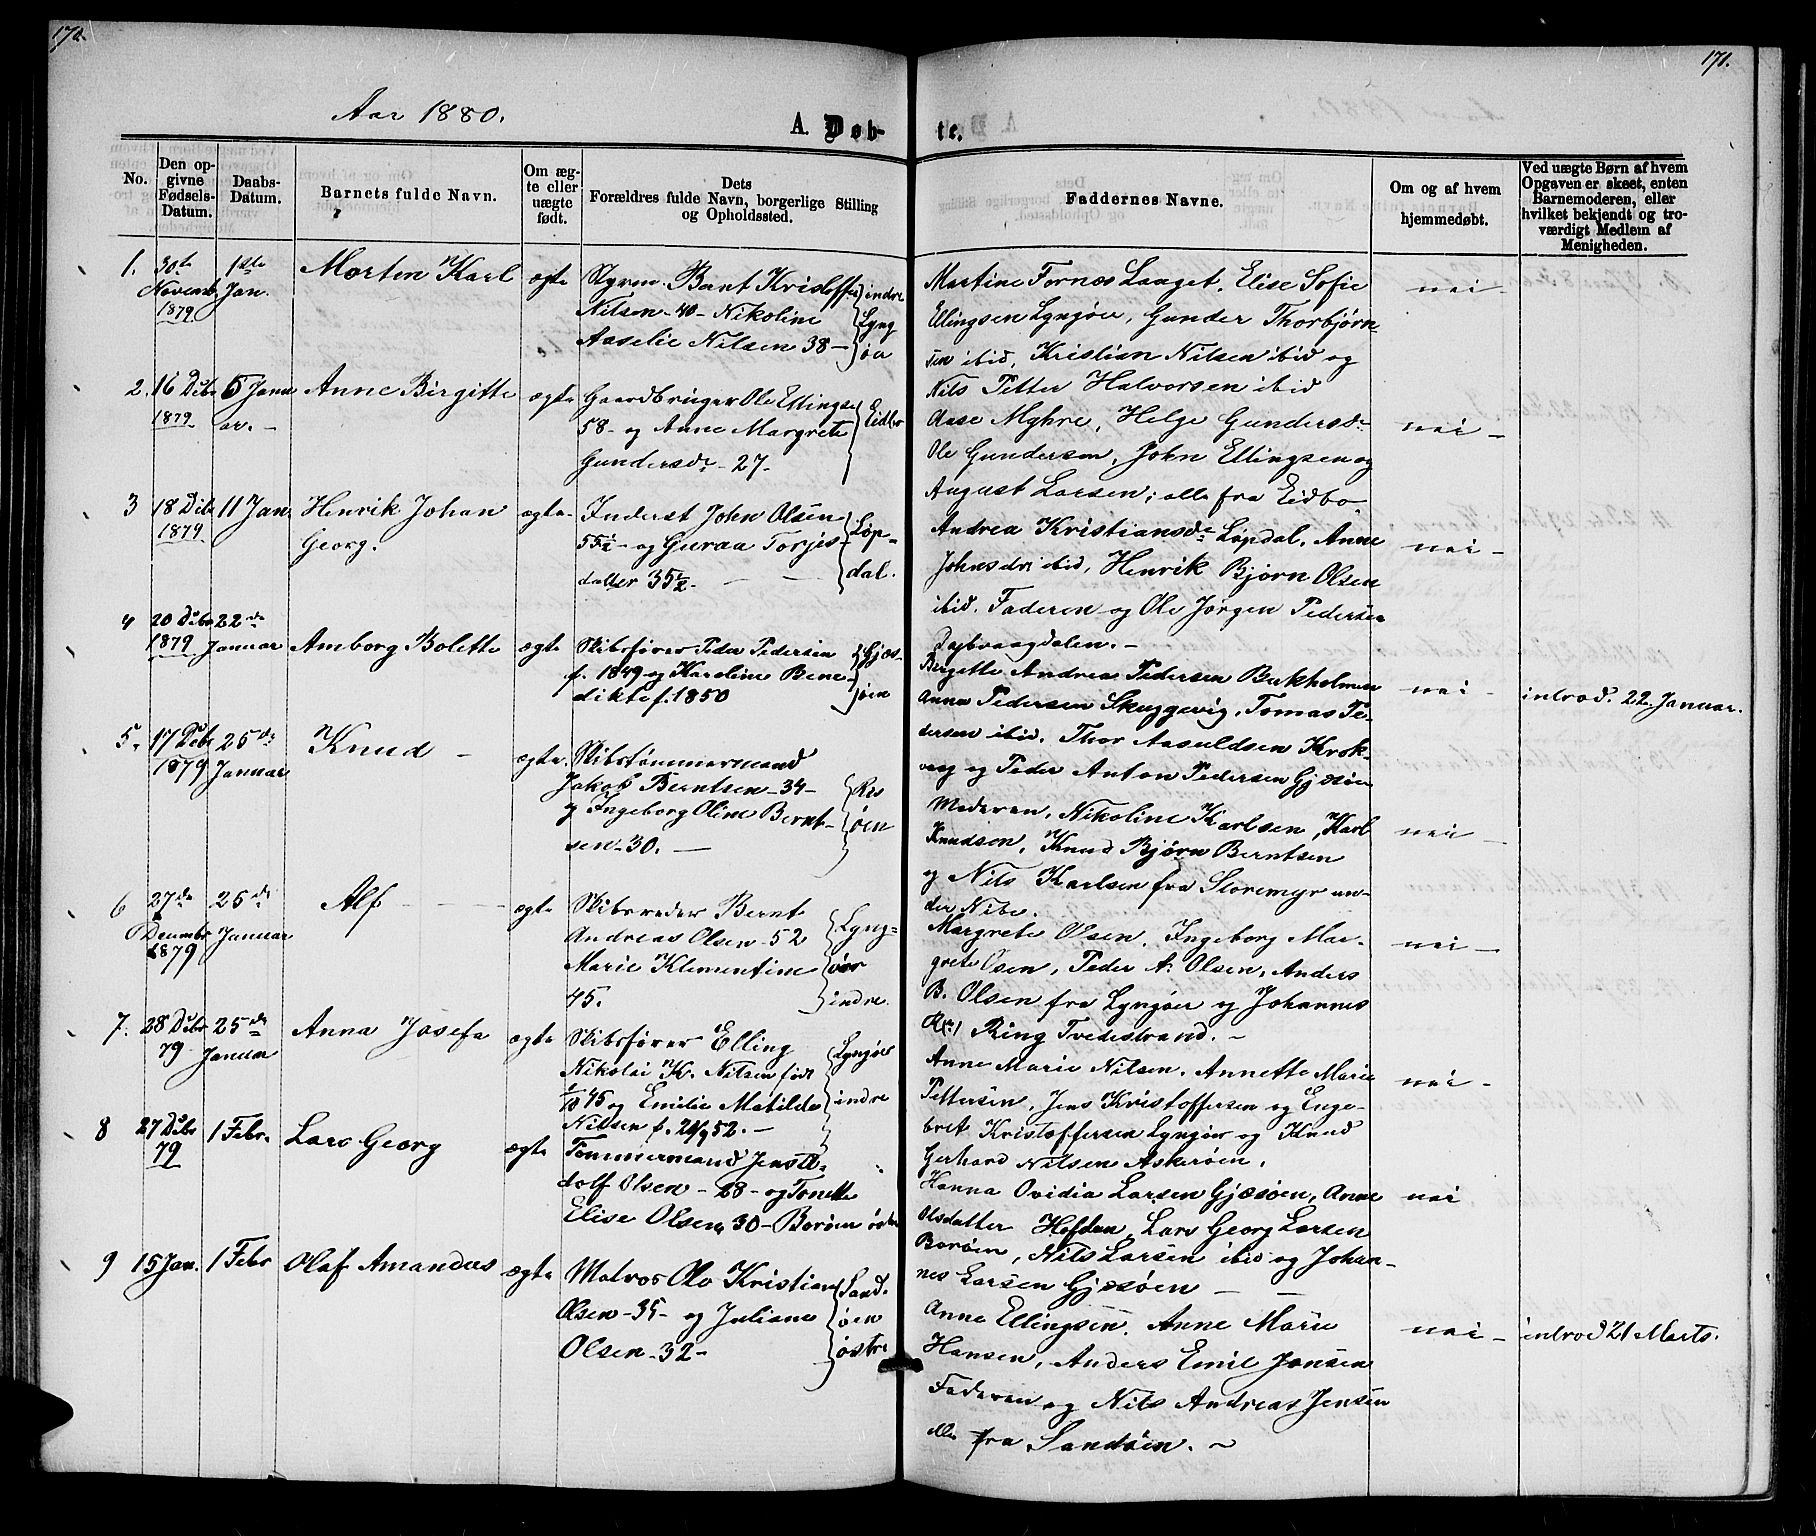 170.
171.
Aar 1880.
A. Døb-
te.
No.
Den op-
givne
Fødsels-
Datum.
Daabs-
Datum.
Barnets fulde Navn.
Om æg-
te eller
uægte
født.
Dets
Forældres fulde Navn, borgerlige Stilling
og Opholdssted.
Faddernes Navne.
Om og af hvem
hjemmedøbt.
Ved uægte Børn af hvem
Opgaven er skeet, enten
Barnemoderen, eller
hvilket bekjendt og tro-
værdigt Medlem af
Menigheden.
1.
30te
Novemb
1879
1ste
Jan.
Morten Karl
ægte
Styrm. Bent Kristoffer
Nilsen - 40 - Nikoline
Aaselie Nilsen 38 -
indre
Lyng
øa
Martine Fornes Laaget, Elise Sofie
Ellingsen Lyngøer, Gunder Thorbjørn-
sen ibid, Kristian Nilsen ibid og
Nils Petter Halvorsen ibid
nei -
2.
16 Dcbr
1879
5 Janu
ar. -
Anne Birgitte
ægte
Gaardbruger Ole Ellingse
58 - og Anne Margrete
Gundersdr - 27 -
Eidbo
Aase Myhre, Helge Gundersdr
Ole Gundersen, John Ellingsen og
August Larsen; alle fra Eidbo
nei -
3
18 Dcbr
1879
11 Jan.
Henrik Johan
Georg.
ægte
Inderst John Olsen
55½ - og Guraa Torjes-
datter 35½ -
Løp-
dal.
Andrea Kristiansdr Løpdal, Anne
Johnsdr ibid, Henrik Bjørn Olsen
ibid. Faderen og Ole Jørgen Pedersen
Dybvaagdalen. -
nei -
4
20 Dcbr
1879
22de
Januar
Amborg Bolette
ægte
Skibsfører Peder Pedersen
f. 1849 og Karoline Bene-
dikte f. 1850
Gjæs-
øen
Bergitte Andrea Pedersen Bukholmen
Anna Pedersen Skuggevig, Tomas Pe-
dersen ibid. Thor Aasuldsen Krok-
vaag og Peder Anton Pedersen Gjæsøen
nei -
introd. 22. Januar.
5.
17 Dcbr
1879
25de
Januar
Knud -
ægte.
Skibstømmermand
Jakob Berntsen - 34 -
og Ingeborg Oline Bernt-
sen - 30. -
Res
øen
Moderen, Nikoline Karlsen, Karl
Knudson, Knud Bjørn Berntsen
og Nils Karlsen fra Storemyr un-
der Nibe.
nei -
6
27de
Decembr
1879
25de
Januar
Alf
ægte
Skibsreder Bernt
Andreas Olsen - 52
Marie Klementine
45.
Lyng-
øer
indre
Margrete Olsen, Ingeborg Mar-
grete Osen, Peder A. Olsen, Anders
B. Olsen fra Lyngøer og Johannes
Ring Tvedestrand. -
nei -
7.
28 Dcbr
79
25de
Januar
Anna Josefa
ægte
Skibsfører Elling
Nikolai K. Nilsen født
1/10 45 og Emilie Matilde
Nilsen f. 21/9 52. -
Lyngøer
indre
Anne Marie Nilsen. Annette Marie
Pettersen, Jens Kristoffersen og Enge-
bret Kristoffersen Lyngøer og Knud
Gerhard Nilsen Askerøen.
nei -
8
27 Dcbr
79
1 Febr.
Lars Georg
ægte
Tømmermand Jens Ol-
dolf Olsen - 28 - og Tonette
Elise Olsen 30 - Borøen østre
Hanna Ovidia Larsen Gjæsøen, Anne
Olsdatter Hefden, Lars Georg Larsen
Borøen, Nils Larsen ibid og Johan-
nes Larsen Gjæsøen -
nei
9
15 Jan.
1 Febr
Olaf Amandus
ægte
Matros Ole Kristian
Olsen - 35 - og Juliane
Olsen - 32 -
Sand
øen
østre
Anne Ellingsen. Anne Marie
Hansen, Anders Emil Jansen
Faderen og Nils Andreas Jensen
alle fra Sandøen. ~
nei -
introd 21 Marts.